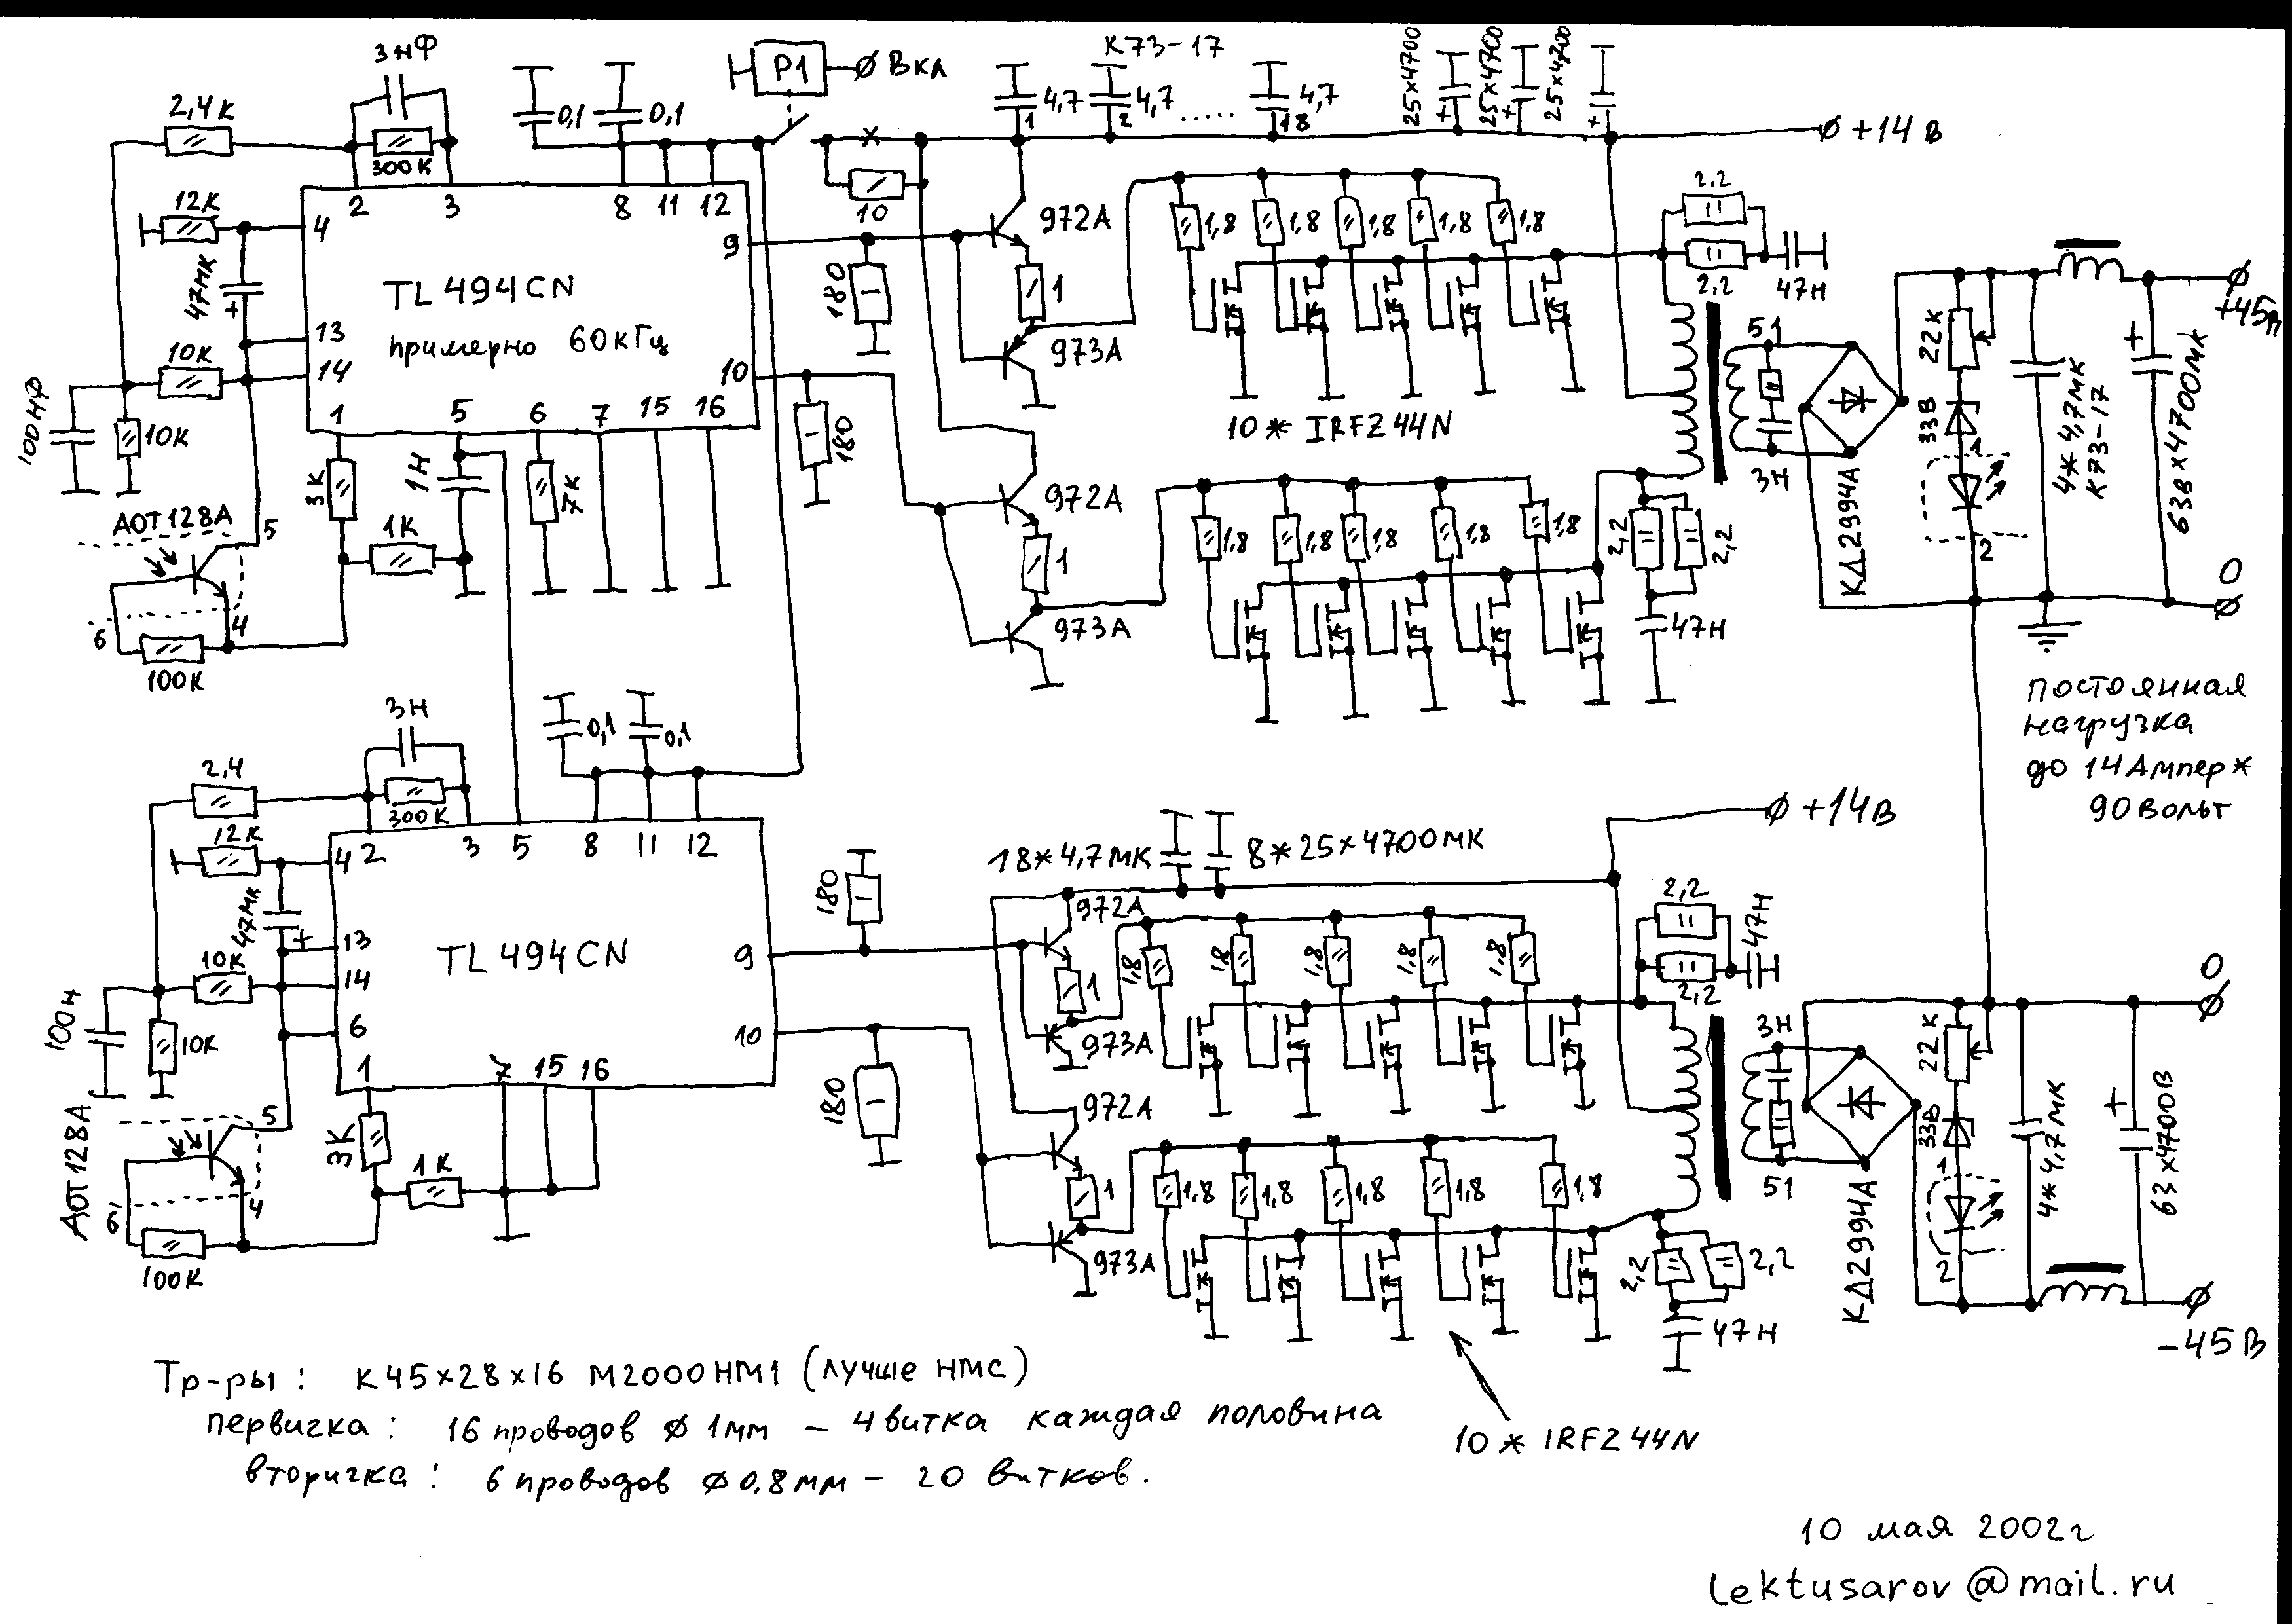 3нФ
2,4к
300к
0,1
0,1
P1
Вкл
К73-17
4,7
1
4,7
2
.....
4,7
18
25×4700
25×4700
25×4700
+14 В
12к
47мк
+
10к
10к
100нФ
2
3
8
11
12
4
13
14
9
10
TL494CN
примерно 60кГц
1
5
6
7
15
16
10
180
180
972А
1
973А
972А
1
973А
1,8
1,8
1,8
1,8
1,8
10 * IRFZ44N
1,8
1,8
1,8
1,8
1,8
2,2
2,2
47н
2,2
2,2
47н
51
3н
КД2994А
22к
33В
1
2
4*4,7мк
К73-17
63В×4700мк
+45В
0
3к
1н
7к
1к
АОТ128А
5
4
6
100к
постоянная
нагрузка
до 14Ампер*
90вольт
3н
2,4
300к
0,1
0,1
12к
47мк
+
10к
10к
100н
2
3
5
8
11
12
4
13
14
6
9
10
TL494CN
1
7
15
16
180
180
18*4,7мк
8*25×4700мк
+14В
972А
1
973А
972А
1
973А
1,8
1,8
1,8
1,8
1,8
1,8
1,8
1,8
1,8
1,8
2,2
2,2
47н
2,2
2,2
47н
3н
51
КД2994А
22к
33В
1
2
4*4,7мк
63×4700В
0
-45В
АОТ128А
5
4
6
3к
1к
100к
10 * IRFZ44N
Тр-ры: К45×28×16 М2000НМ1 (лучше НМС)
первичка: 16 проводов ø 1мм – 4витка каждая половина
вторичка: 6 проводов ø0,8мм – 20 витков.
10 мая 2002г
lektusarov@mail.ru